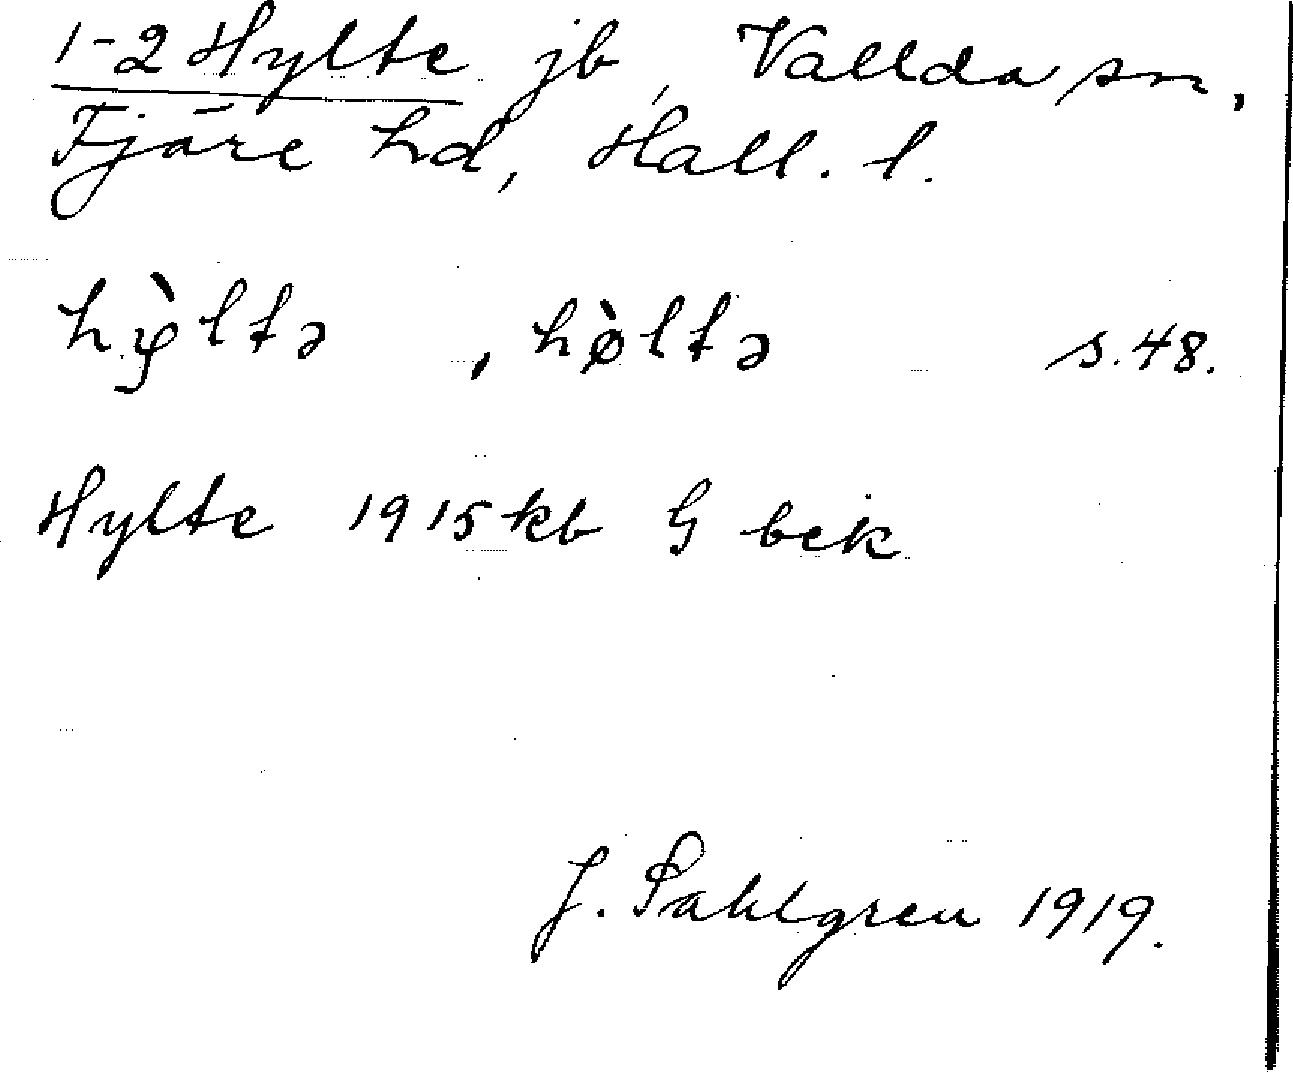 1-2 Hylte jb, Vallda sn,
Fjäre hd, Hall. l.
hỳ̨ltə, hø̀ltə s. 48.
Hylte 1915 kb G bek
J. Sahlgren 1919.